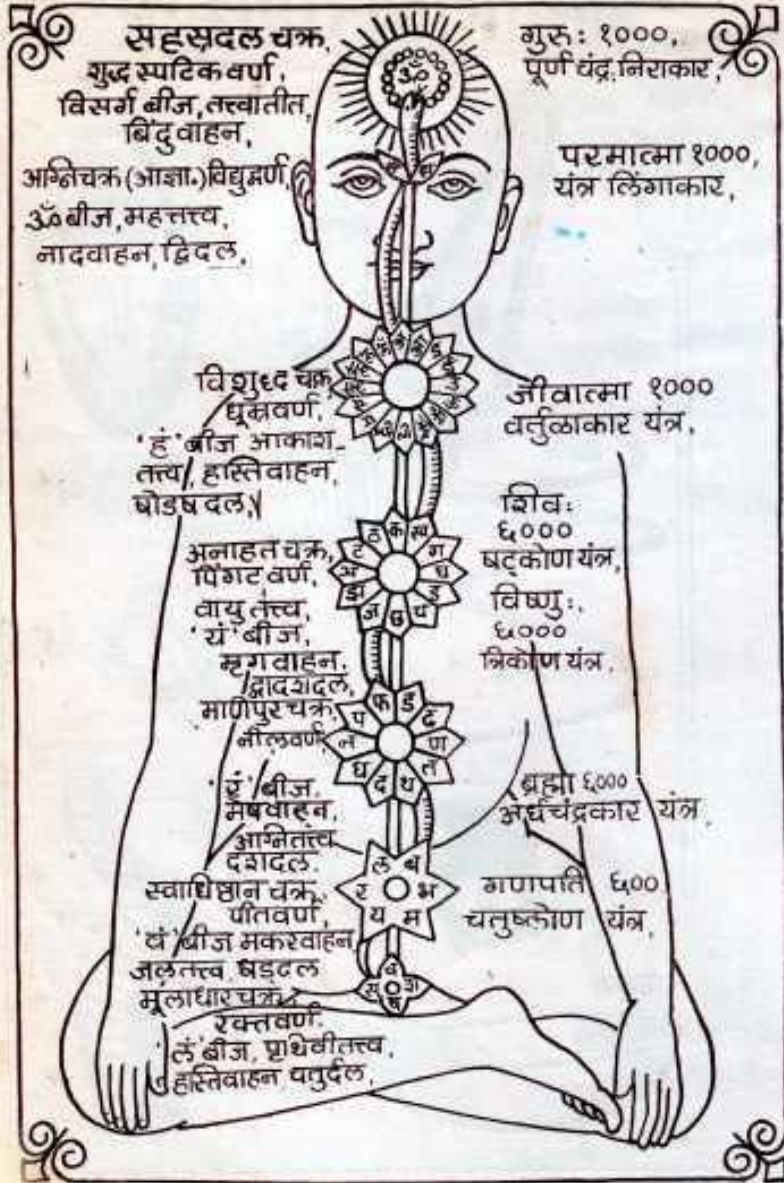 सहस्रदल चक्र,
शुद्ध स्पटिक वर्ण,
विसर्ग बीज, तत्त्वातीत,
बिंदुवाहन,
अग्निचक्र (आज्ञा.) विद्युद्वर्ण,
ॐ बीज, महत्तत्त्व,
नादवाहन, द्विदल,
गुरु: १०००,
पूर्ण चंद्र, निराकार,
परमात्मा १०००,
यंत्र लिंगाकार,
ॐ
विशुध्द चक्र
धूम्रवर्ण,
'हं' बीज आकाश-
तत्त्व, हास्तिवाहन,
षोडषदल,
जीवात्मा १०००
वर्तुळाकार यंत्र,
अनाहत चक्र,
पिंगट वर्ण,
वायु तत्त्व,
'यं' बीज,
मृगवाहन.
द्वादशदल,
शिव:
६०००
षट्कोण यंत्र,
विष्णु:,
६०००
त्रिकोण यंत्र.
क ख ग घ ङ च छ ज झ ञ ट ठ
माणिपुर चक्र,
नीलवर्ण
बीज,
मेषवाहन,
अग्नितत्त्व
दशदल.
ड ढ ण त थ द ध न प फ
ब्रह्मा ६०००
अर्धचंद्रकार यंत्र,
स्वाधिष्ठान चक्र,
पीतवर्ण,
'वं' बीज मकरवाहन
जलतत्त्व, षड्दल
ब भ म य र ल
गणपति ६००
चतुष्कोण यंत्र,
मूलाधार चक्र,
रक्तवर्ण.
'लं' बीज, पृथिवीतत्त्व,
हस्तिवाहन, चतुर्दल,
व श ष स